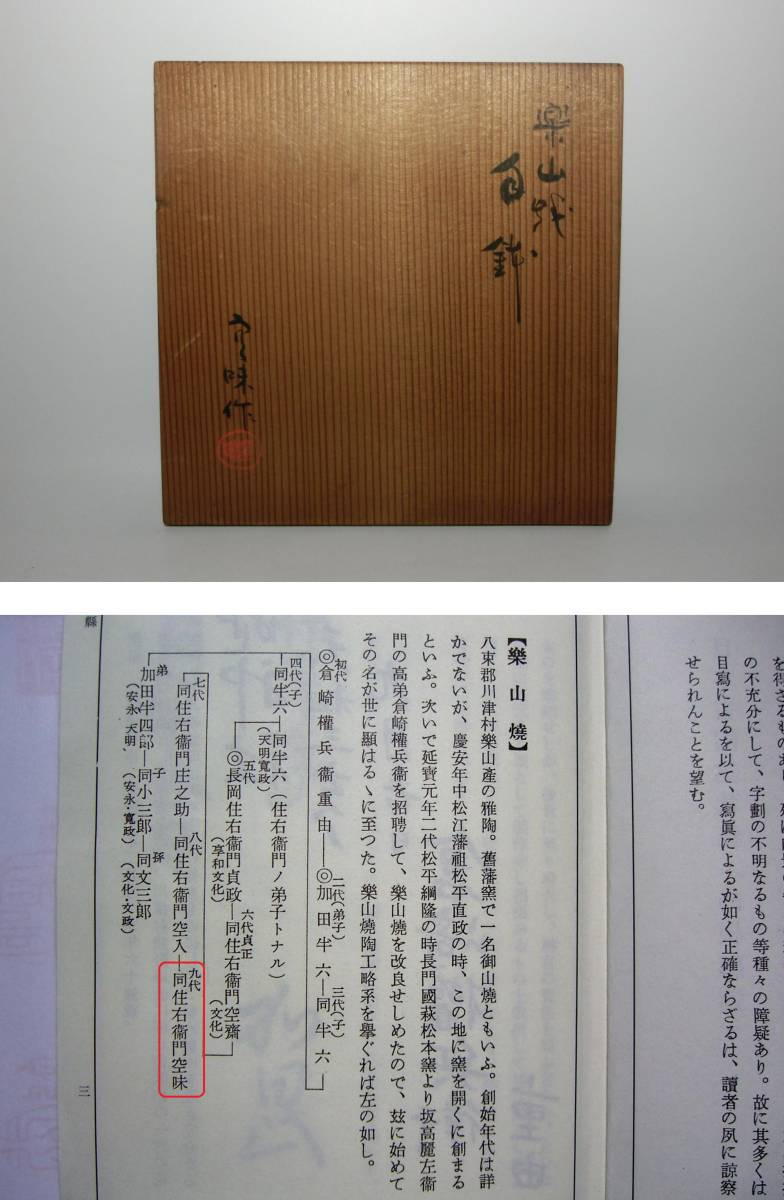 樂山焼
白鉢
空味作
を得ざるものあり
の不充分にして、字劃の不明なるもの等種々の障疑あり。故に其多くは
目寫によるを以て、寫眞によるが如く正確ならざるは、讀者の夙に諒察
せられんことを望む。
【樂山燒】
八束郡川津村樂山產の雅陶。舊藩窯で一名御山燒ともいふ。創始年代は詳
かでないが、慶安年中松江藩祖松平直政の時、この地に窯を開くに創まる
といふ。次いで延寶元年二代松平綱隆の時長門國萩松本窯より坂高麗左衞
門の高弟倉崎權兵衞を招聘して、樂山燒を改良せしめたので、玆に始めて
その名が世に顯はるゝに至つた。樂山燒陶工略系を擧ぐれば左の如し。
初代 ◎倉崎權兵衞重由―二代(弟子) ◎加田半六―三代(子) 同半六
四代(子) 同半六―同半六(住右衞門ノ弟子トナル)
(天明寬政)
五代 ◎長岡住右衞門貞政―六代貞正 同住右衞門空齋
(享和文化) (文化)
七代 同住右衞門庄之助―八代 同住右衞門空入―九代 同住右衞門空味
弟 加田半四郎―子 同小三郎―孫 同文三郎
(安永、天明) (安永・寬政) (文化・文政)
縣
三